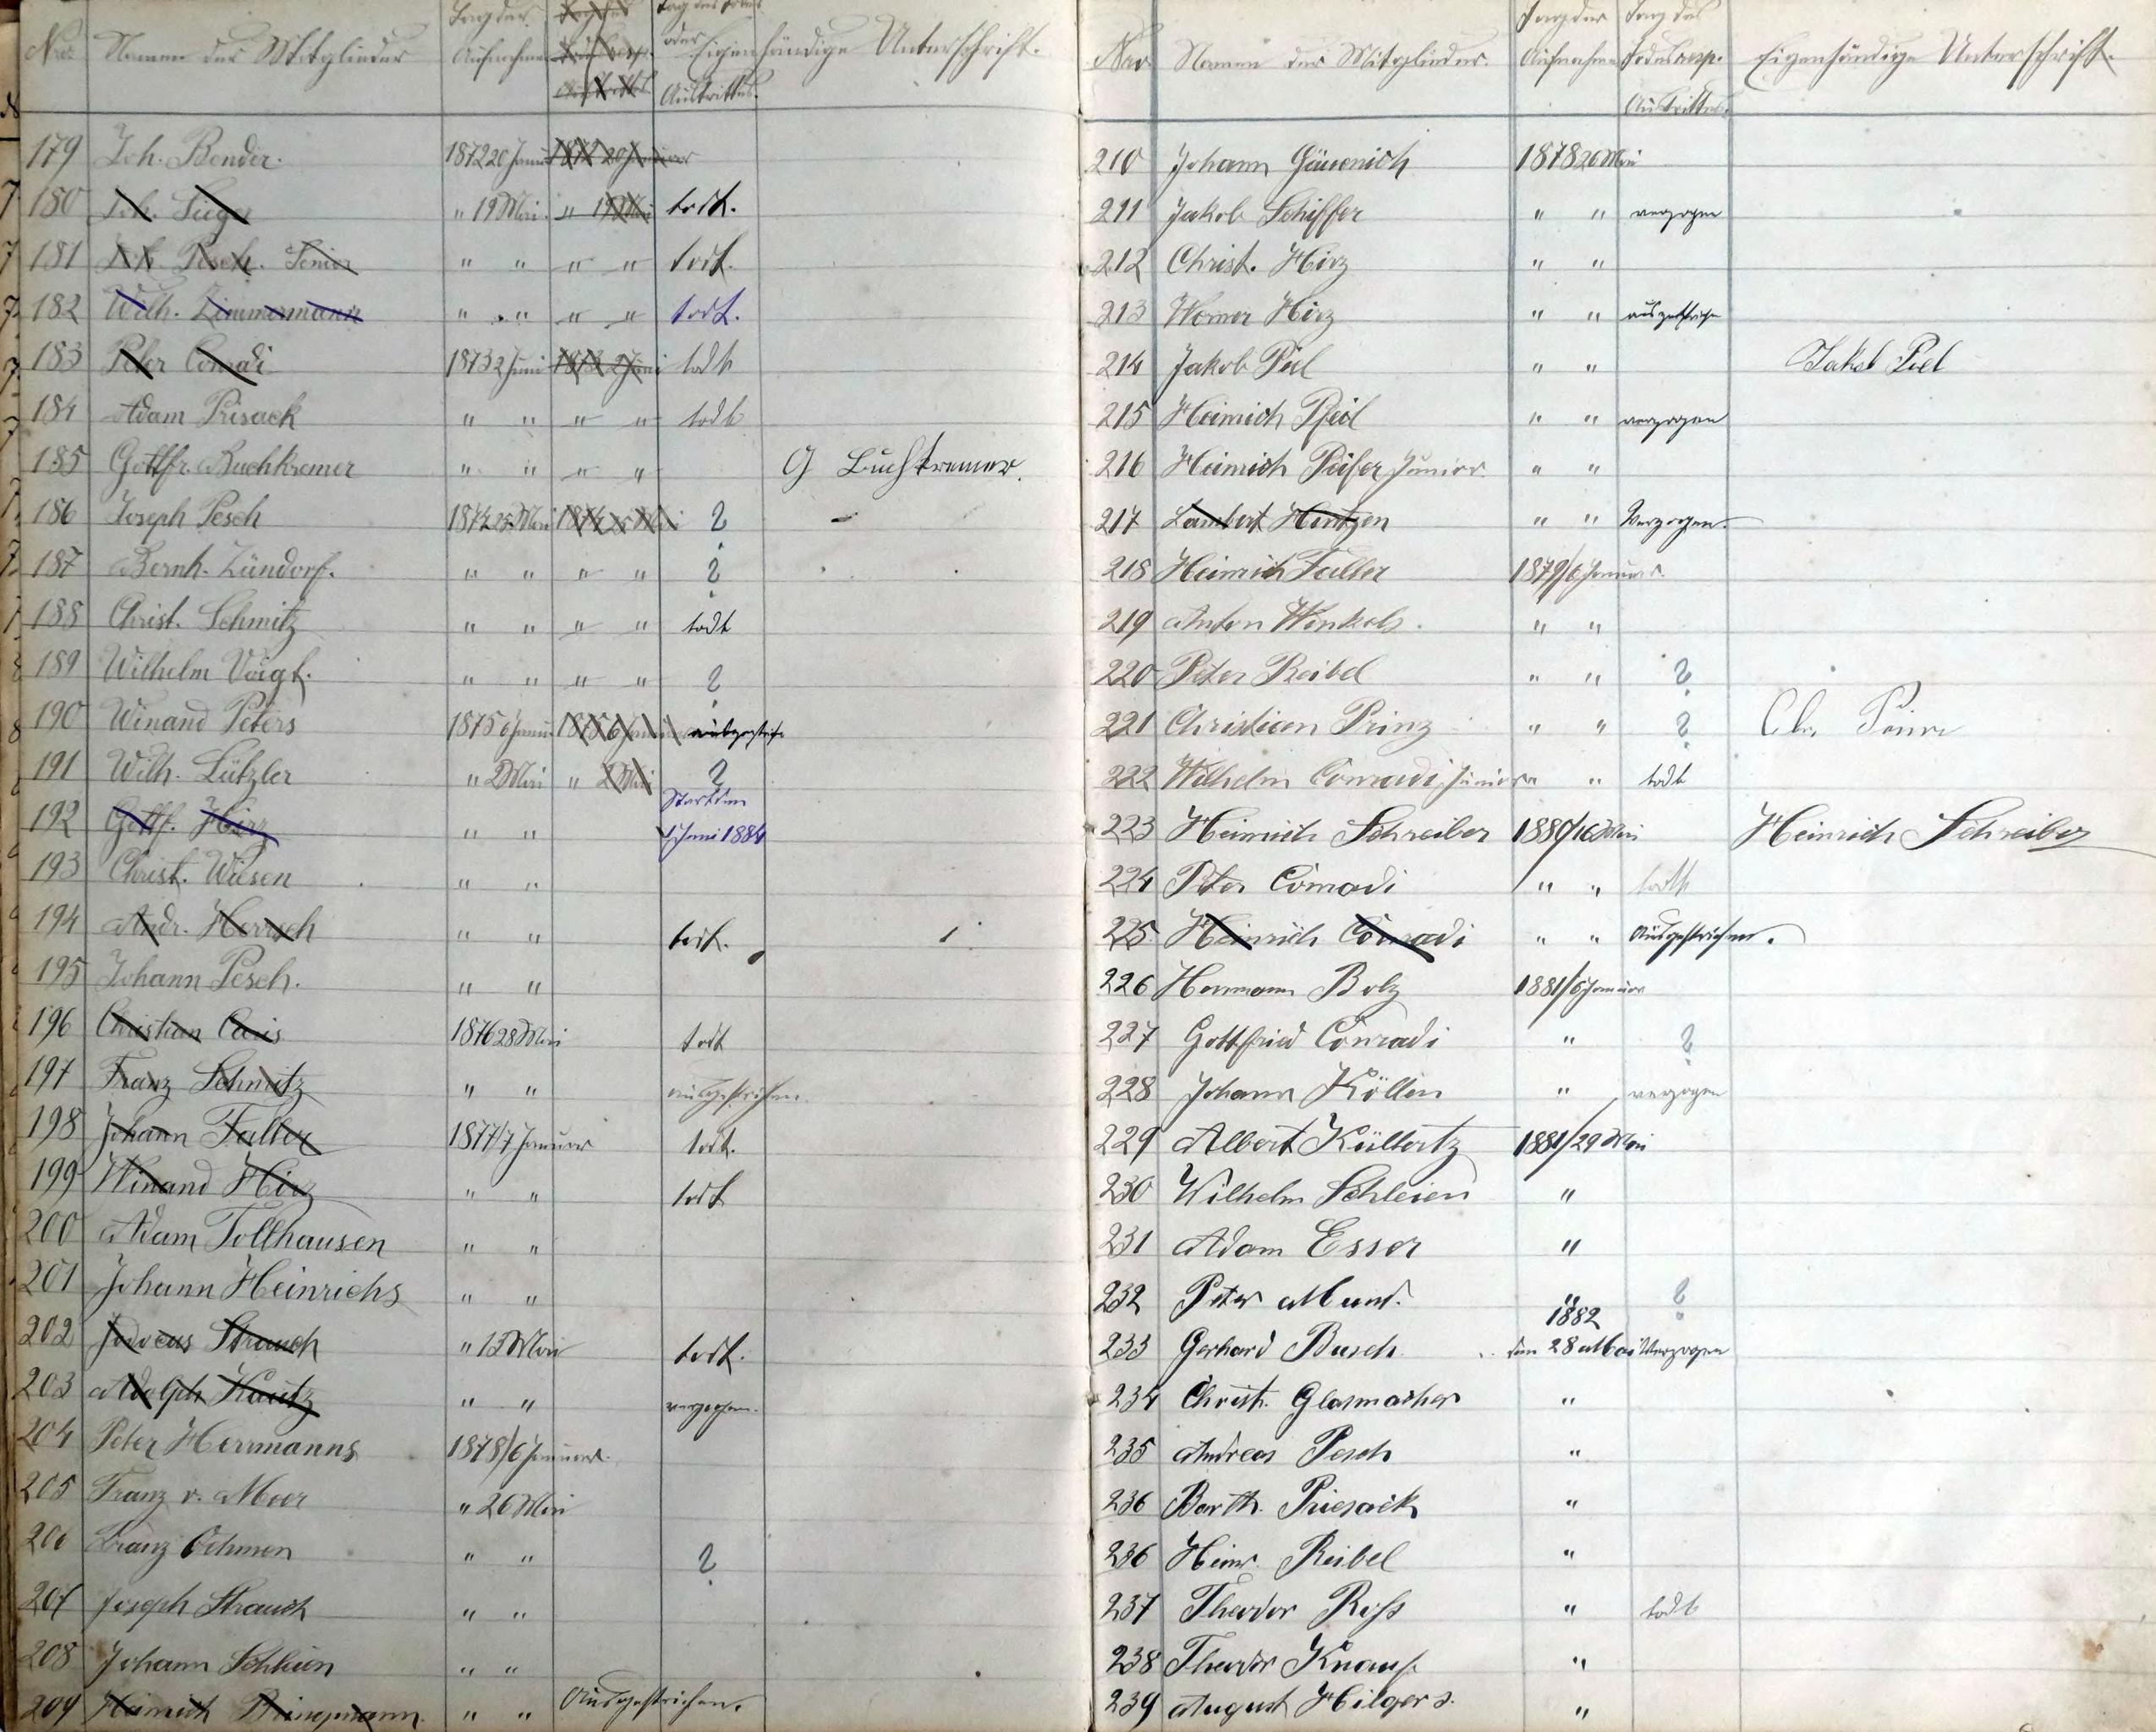 Nro Namen der Mitglieder Tag der Aufnahme Tag des Todes oder Austrittes. Eigenhändige Unterschrift.
179 Joh. Bender. 1872 20 Januar 1872 20 Januar
180 Joh. Sieger " 19 Mai " 19 Mai todt.
181 Joh. Pesch. Senior " " " " todt.
182 Wilh. Zimmermann " " " " todt.
183 Peter Conradi 1873 2 Juni 1873 2 Juni todt
184 Adam Prisack " " " " todt
185 Gottfr. Buchkremer " " " " G Buchkremer.
186 Joseph Pesch 1874 25 Mai 1874 25 Mai ?
187 Bernh. Zündorf. " " " " ?
188 Christ. Schmitz " " " " todt
189 Wilhelm Voigt. " " " " ?
190 Winand Peters 1875 6 Januar 1875 6 Januar ausgestrichen
191 Wilh. Lützler " 2 Mai " 2 Mai ?
192 Gottf. Hirz " " Starb den 1 Juni 1884
193 Christ. Wiesen " "
194 Andr. Hersch " " todt.
195 Johann Pesch. " "
196 Christian Caris 1876 28 Mai todt
197 Franz Schmitz " " ausgestrichen
198 Johann Faller 1877/7 Januar todt.
199 Winand Hirz " " todt
200 Adam Tollhausen " "
201 Johann Heinrichs " "
202 Jodocus Strauch " 13 Mai todt.
203 Adolph Kautz " " verzogen.
204 Peter Herrmanns 1878/6 Januar.
205 Franz v. Meer " 26 Mai
206 Franz Oehmen " " ?
207 Joseph Strauch " "
208 Johann Schleien " "
209 Heinrich Bringmann. " " Ausgestrichen.
Nro Namen der Mitglieder. Tag der Aufnahme Tag des Todes resp. Austrittes. Eigenhändige Unterschrift.
210 Johann Gäuenich 1878 26 Mai
211 Jakob Schiffer " " verzogen
212 Christ. Hirz " "
213 Werner Hirz " " ausgestrichen
214 Jakob Piel " " Jakob Piel
215 Heinrich Pfeil " " verzogen
216 Heinrich Peifer Junior " "
217 Lambert Hentzen " " Verzogen.
218 Heinrich Faller 1879/6 Januar.
219 Anton Winkels. " "
220 Peter Reibel " " ?
221 Christian Prinz " " ? Chr. Prinz
222 Wilhelm Conradi, Junior " " todt
223 Heinrich Schreiber 1880/16 Mai Heinrich Schreiber
224 Peter Conradi " " todt
225 Heinrich Conradi " " Ausgestrichen.
226 Hermann Bolz 1881/6 Januar
227 Gottfried Conradi " ?
228 Johann Köllen " verzogen
229 Albert Küllertz 1881/29 Mai
230 Wilhelm Schleien "
231 Adam Esser "
232 Peter Mund. " ?
1882
233 Gerhard Busch den 28 Mai Verzogen
234 Christ. Glasmacher "
235 Andreas Pesch "
236 Barth. Priesack "
236 Heinr. Reibel "
237 Theodor Ross " todt
238 Theodor Knauf. "
239 August Hilgers. "